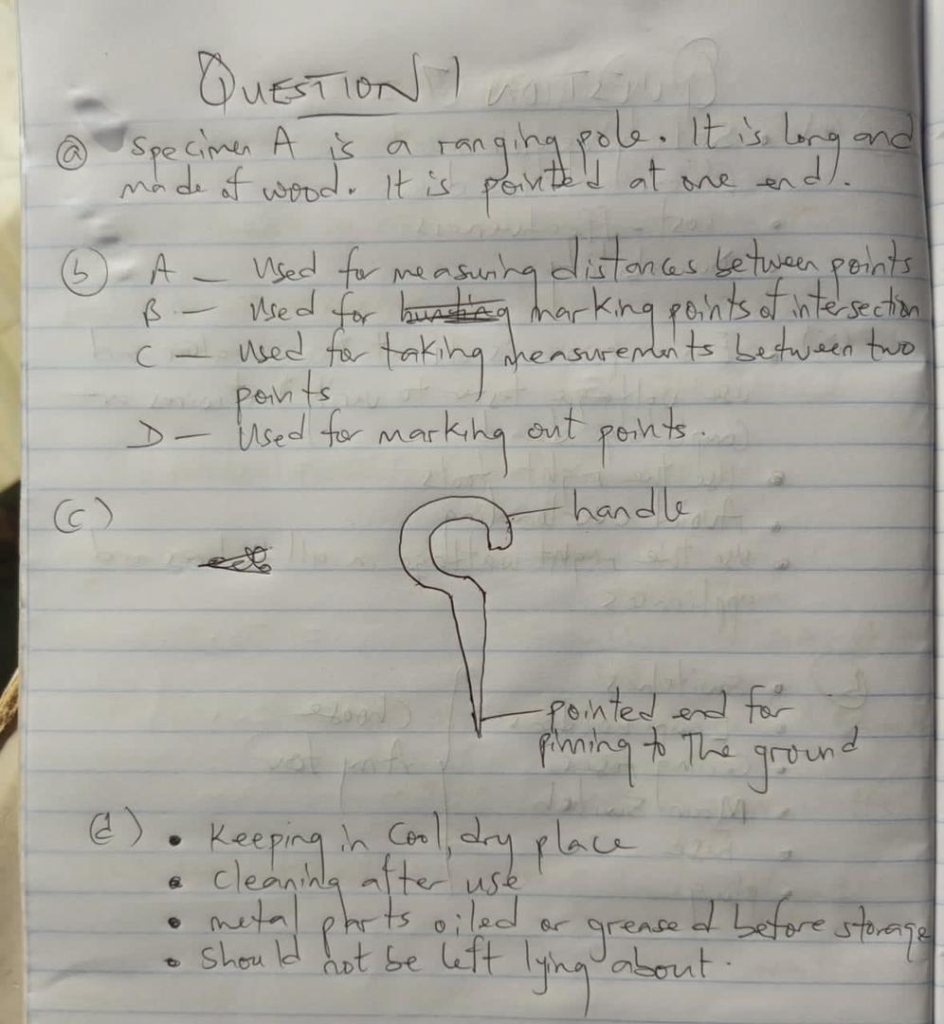 QUESTION 1
(a) Specimen A is a ranging pole. It is long and
made of wood. It is pointed at one end.
(b) A – Used for measuring distances between points
B – Used for marking points of intersection
C – Used for taking measurements between two
points
D – Used for marking out points.
(c)
handle
pointed end for
pinning to The ground
(d) • Keeping in Cool, dry place
• Cleaning after use
• metal parts oiled or greased before storage
• Should not be left lying about.